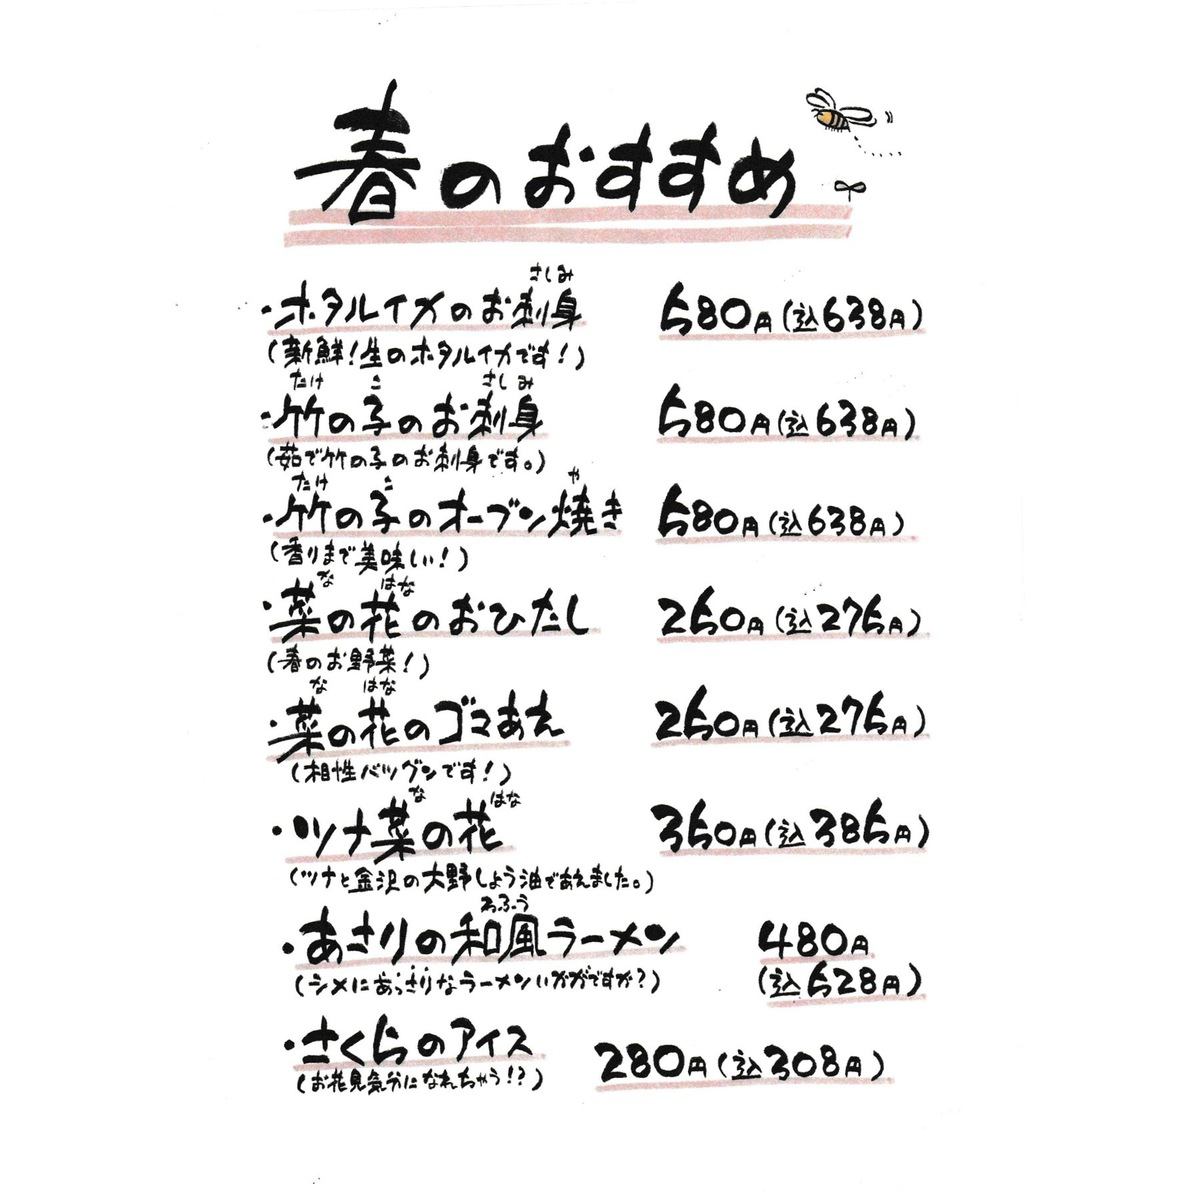 春のおすすめ
さしみ
・ホタルイカのお刺身 580円(込638円)
(新鮮!生のホタルイカです!)
たけ こ さしみ
・竹の子のお刺身 580円(込638円)
(茹で竹の子のお刺身です。)
たけ こ や
・竹の子のオーブン焼き 580円(込638円)
(香りまで美味しい!)
な はな
・菜の花のおひたし 250円(込275円)
(春のお野菜!)
な はな
・菜の花のゴマあえ 250円(込275円)
(相性バツグンです!)
な はな
・ツナ菜の花 350円(込385円)
(ツナと金沢の大野しょう油であえました。)
わふう
・あさりの和風ラーメン 480円
(シメにあっさりなラーメンいかがですか?) (込528円)
・さくらのアイス 280円(込308円)
(お花見気分になれちゃう!?)